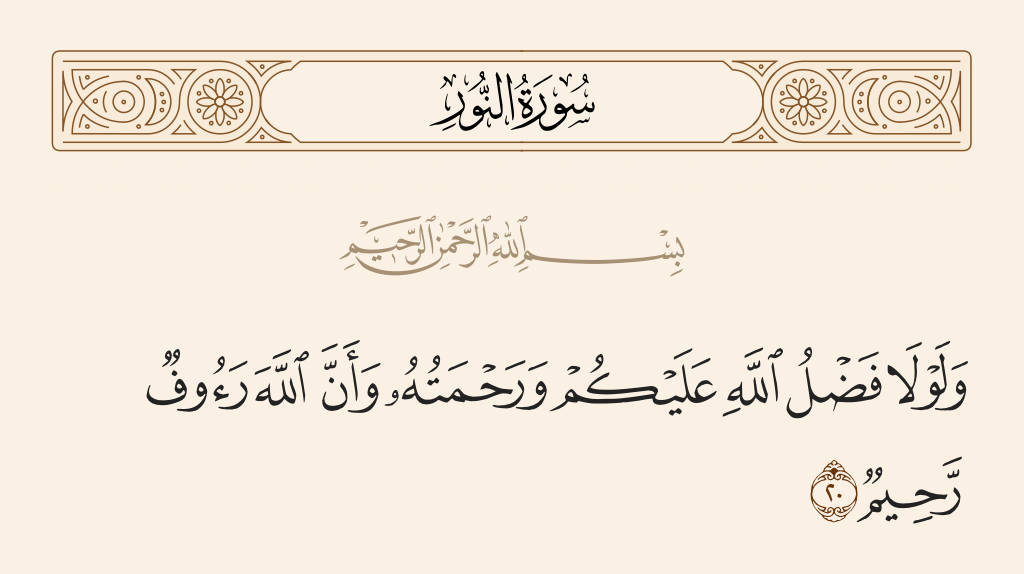 سُورَةُ النُّورِ
بِسْمِ ٱللَّهِ ٱلرَّحْمَٰنِ ٱلرَّحِيمِ
وَلَوْلَا فَضْلُ ٱللَّهِ عَلَيْكُمْ وَرَحْمَتُهُۥ وَأَنَّ ٱللَّهَ رَءُوفٌ
رَّحِيمٌ ٢٠